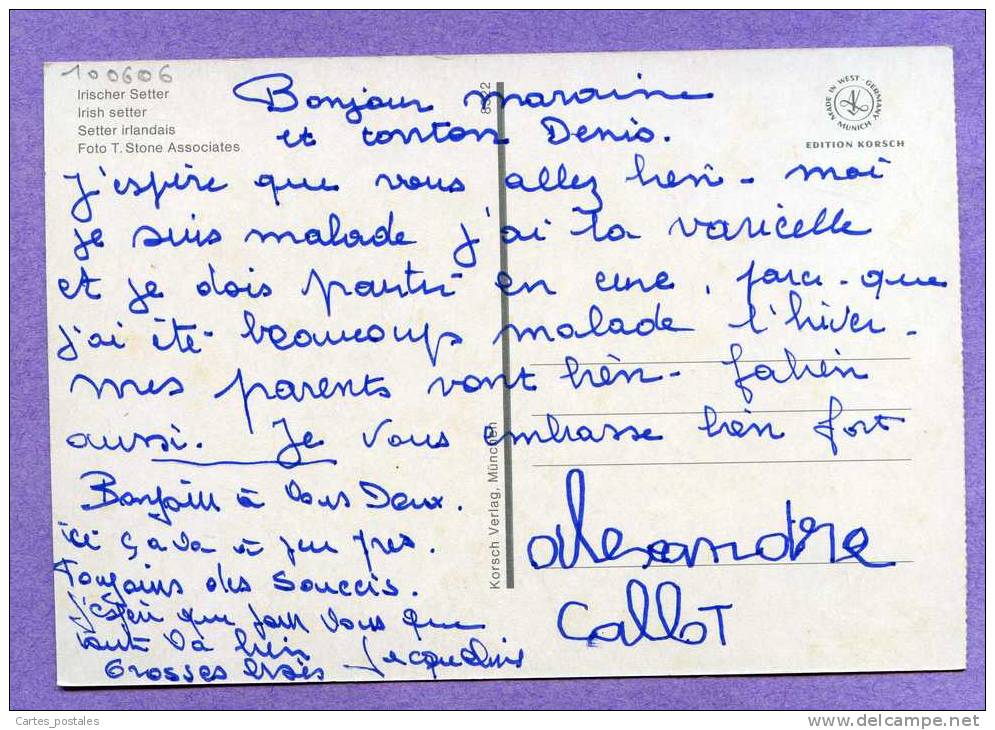 100606
Irischer Setter
Irish setter
Setter irlandais
Foto T. Stone Associates
8322
MADE IN WEST-GERMANY
MUNICH
EDITION KORSCH
Korsch Verlag, München
Bonjour maraine
et tonton Denis.
J'espère que vous allez bien - moi
je suis malade j'ai la varicelle
et je dois partir en cure, parce-que
j'ai été beaucoup malade l'hiver -
mes parents vont bien - fabien
aussi. Je vous embrasse bien fort
alexandre
Callot
Bonjour à vous Deux.
ici ça va à peu pres.
Toujours des Souccis.
j'espère que pour vous que
tout va bien
Grosses bises Jacqueline
Cartes_postales
www.delcampe.net